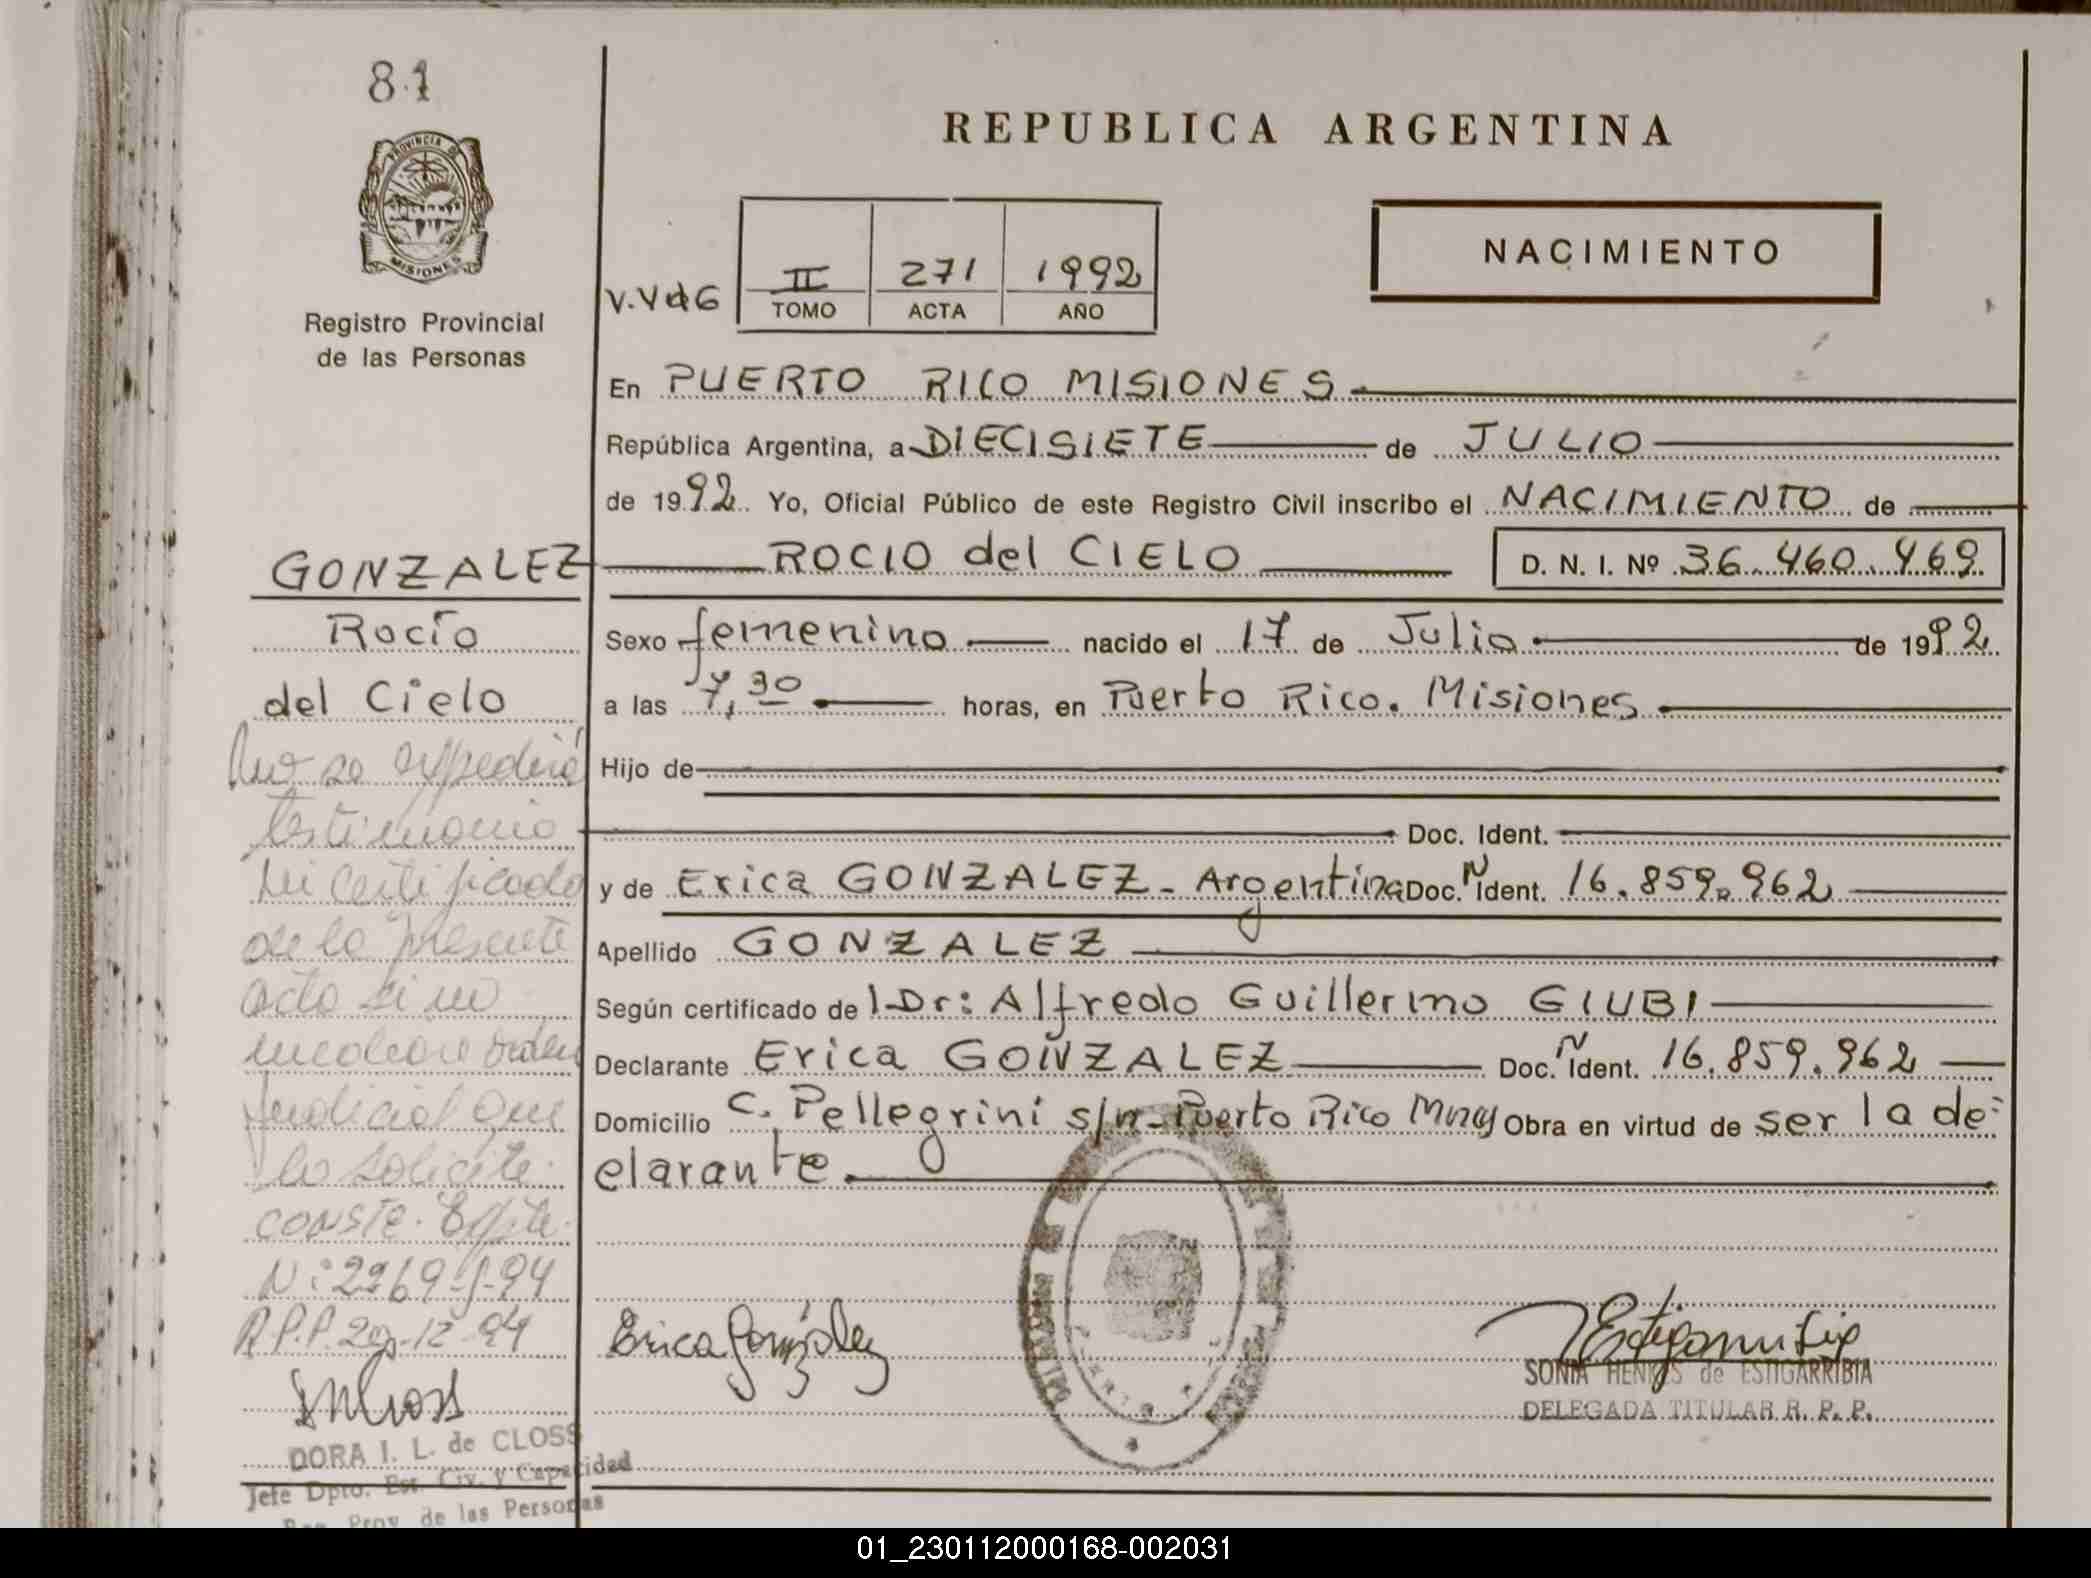 81
PROVINCIA DE
MISIONES
Registro Provincial
de las Personas
REPUBLICA ARGENTINA
NACIMIENTO
V.VdG
II 271 1992
TOMO ACTA AÑO
En PUERTO RICO MISIONES
República Argentina, a DIECISIETE de JULIO
de 1992 Yo, Oficial Público de este Registro Civil inscribo el NACIMIENTO de
GONZALEZ ROCIO del CIELO D. N. I. Nº 36.460.469
Rocío
del Cielo
Sexo femenino nacido el 17 de Julio de 1992
a las 7,30 horas, en Puerto Rico. Misiones
Hijo de
Doc. Ident.
y de Erica GONZALEZ - Argentina Doc. N Ident. 16.859.962
Apellido GONZALEZ
Según certificado de l Dr: Alfredo Guillermo GIUBI
Declarante Erica GONZALEZ Doc. N Ident. 16.859.962
Domicilio C. Pellegrini s/n - Puerto Rico Mnes Obra en virtud de ser la de-
clarante.
No se expedirá
testimonio
ni certificado
de la presente
acta si no
mediare orden
judicial que
lo solicite.
CONSTE. Expte.
Nº: 2269-J-94
R.P.P. 29-12-94
DORA I. L. de CLOSS
Jefe Dpto. Est. Civ. y Capacidad
Reg. Prov. de las Personas
Erica González
SONIA HENKES de ESTIGARRIBIA
DELEGADA TITULAR R. P. P.
01_230112000168-002031